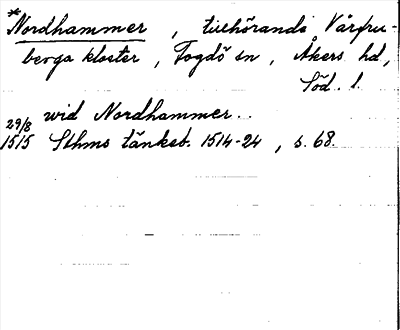 *Nordhammer, tillhörande Vårfru-
berga kloster, Fogdö sn, Åkers hd,
Söd. l.
29/8 wid Nordhammer..
1515 Sthms tänkeb. 1514-24, s. 68.